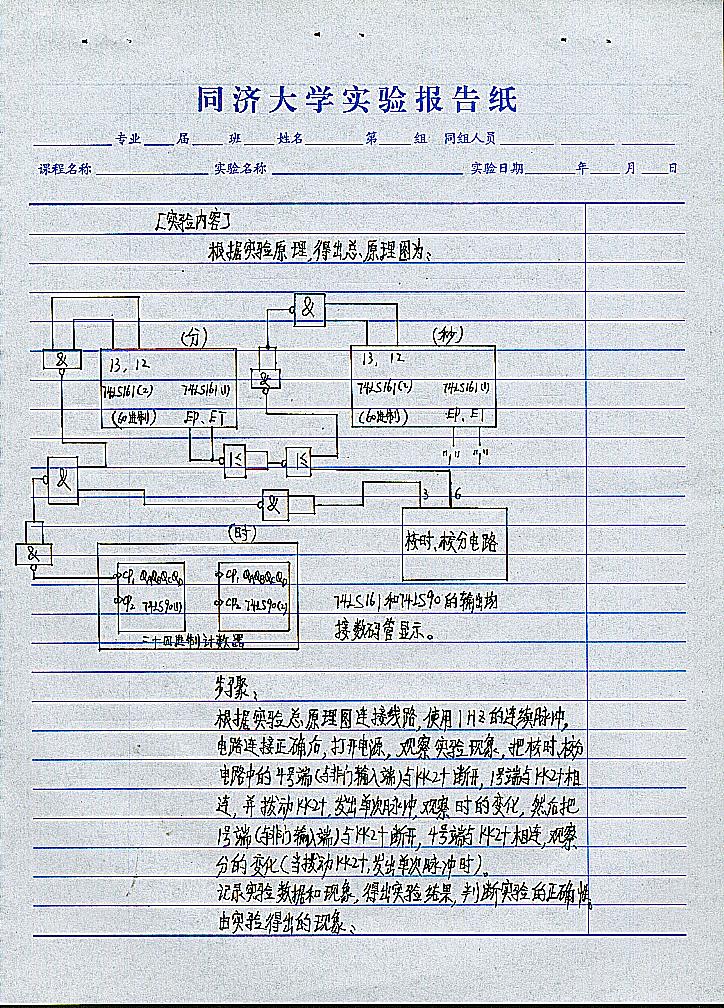 同济大学实验报告纸
专业 届 班 姓名 第 组 同组人员
课程名称 实验名称 实验日期 年 月 日
[实验内容]
根据实验原理,得出总原理图为:
&
(分) (秒)
& 13, 12 & 13, 12
74LS161(2) 74LS161(1) 74LS161(2) 74LS161(1)
(60进制) EP、ET (60进制) EP、ET
1≤ 1≤ "1" "1"
& & 3 6
(时) 校时、校分电路
&
CP1 QAQBQCQD CP1 QAQBQCQD
CP2 74LS90(1) CP2 74LS90(2)
二十四进制计数器
74LS161和74LS90的输出均
接数码管显示。
步聚:
根据实验总原理图连接线路,使用1HZ的连续脉冲,
电路连接正确后,打开电源,观察实验现象,把校时、校分
电路中的4号端(与非门输入端)与KK2+断开,1号端与KK2+相
连,并拨动KK2+,发出单次脉冲,观察时的变化,然后把
1号端(与非门输入端)与KK2+断开,4号端与KK2+相连,观察
分的变化(当拨动KK2+,发出单次脉冲时)。
记录实验数据和现象,得出实验结果,判断实验的正确性。
由实验得出的现象: